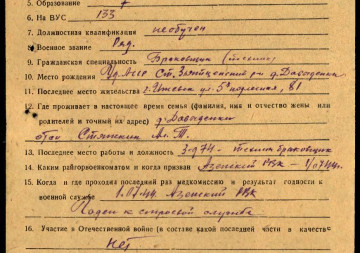 5. Образование 7
6. На ВУС 133
7. Должностная квалификация необучен
8. Военное звание Ряд.
9. Гражданская специальность Браковщик
10. Место рождения Уд. АССР Ст. Зятцинский р-н д. Давыденки
11. Последнее место жительства г. Ижевск ул. 5ª подлесная, 81
12. Где проживает в настоящее время семья (фамилия, имя и отчество жены или
родителей и точный их адрес) д. Давыденки
отец
13. Последнее место работы и должность з-д 74 браковщик
14. Каким райгорвоенкоматом и когда призван Азинский РВК 1/07 44.
15. Когда и где проходил последний раз медкомиссию и результат годности к
военной службе 1.07.44 Азинский РВК
Годен к строевой службе
16. Участие в Отечественной войне (в составе какой последней части в качестве
Нет